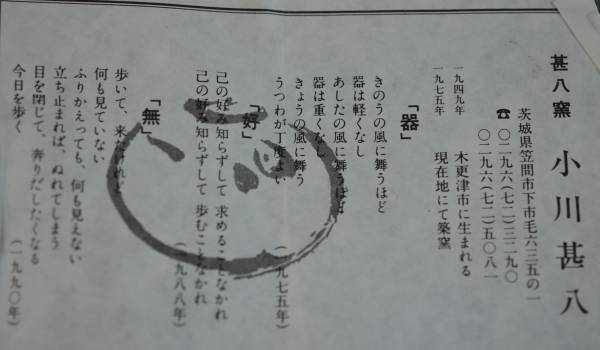 甚八窯 小川甚八
茨城県笠間市下市毛六三五の一
☎〇二九六(七二)三二九〇
〇二九六(七二)五〇八一
一九四九年 木更津市に生まれる
一九七五年 現在地にて築窯
「器」
きのうの風に舞うほど
器は軽くなし
あしたの風に舞うほど
器は重くなし
きょうの風に舞う
うつわが丁度よい
(一九七五年)
「好」
己の好み知らずして 求めることなかれ
己の好み知らずして 歩むことなかれ
(一九八八年)
「無」
歩いて、来たけれど
何も見ていない
ふりかえっても、何も見えない
立ち止まれば、ぬれてしまう
目を閉じて、奔りだしたくなる
今日を歩く
(一九九〇年)